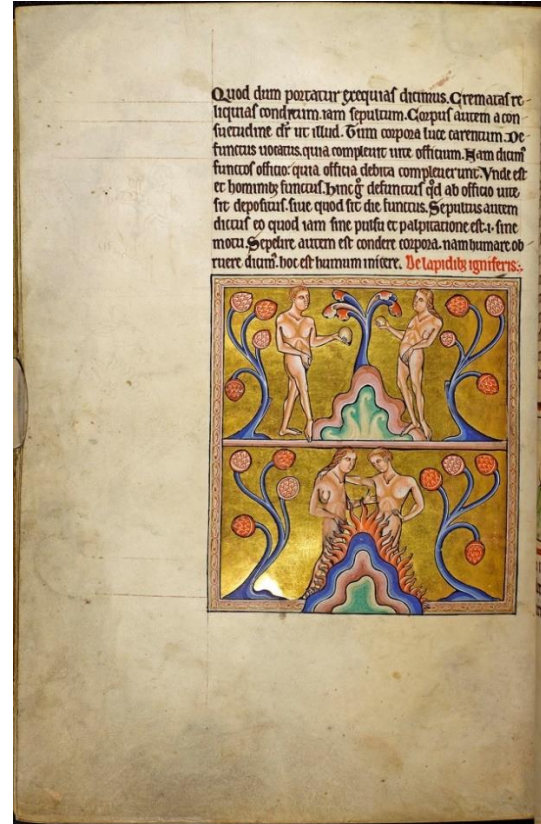 Quod dum portatur exequias dicimus. Crematas re-
liquias conditum. iam sepultum. Corpus autem a con-
suetudine dr̄ ut illud. Tum corpora luce carentum. De-
functus uocatus. quia compleuit uite officium. Nam dicim᷒
functos officio. quia officia debita compleuerunt. Vnde est
et honorib᷒ functus. Hinc g̊ defunctus qd̄ ab officio uite
sit depositus. siue quod sit die functus. Sepultus autem
dictus eo quod iam sine pulsu et palpitatione est .i. sine
motu. Sepelire autem est condere corpora. nam humare ob-
ruere dicim᷒. hoc est humum inicere. De lapidib᷒ igniferis.